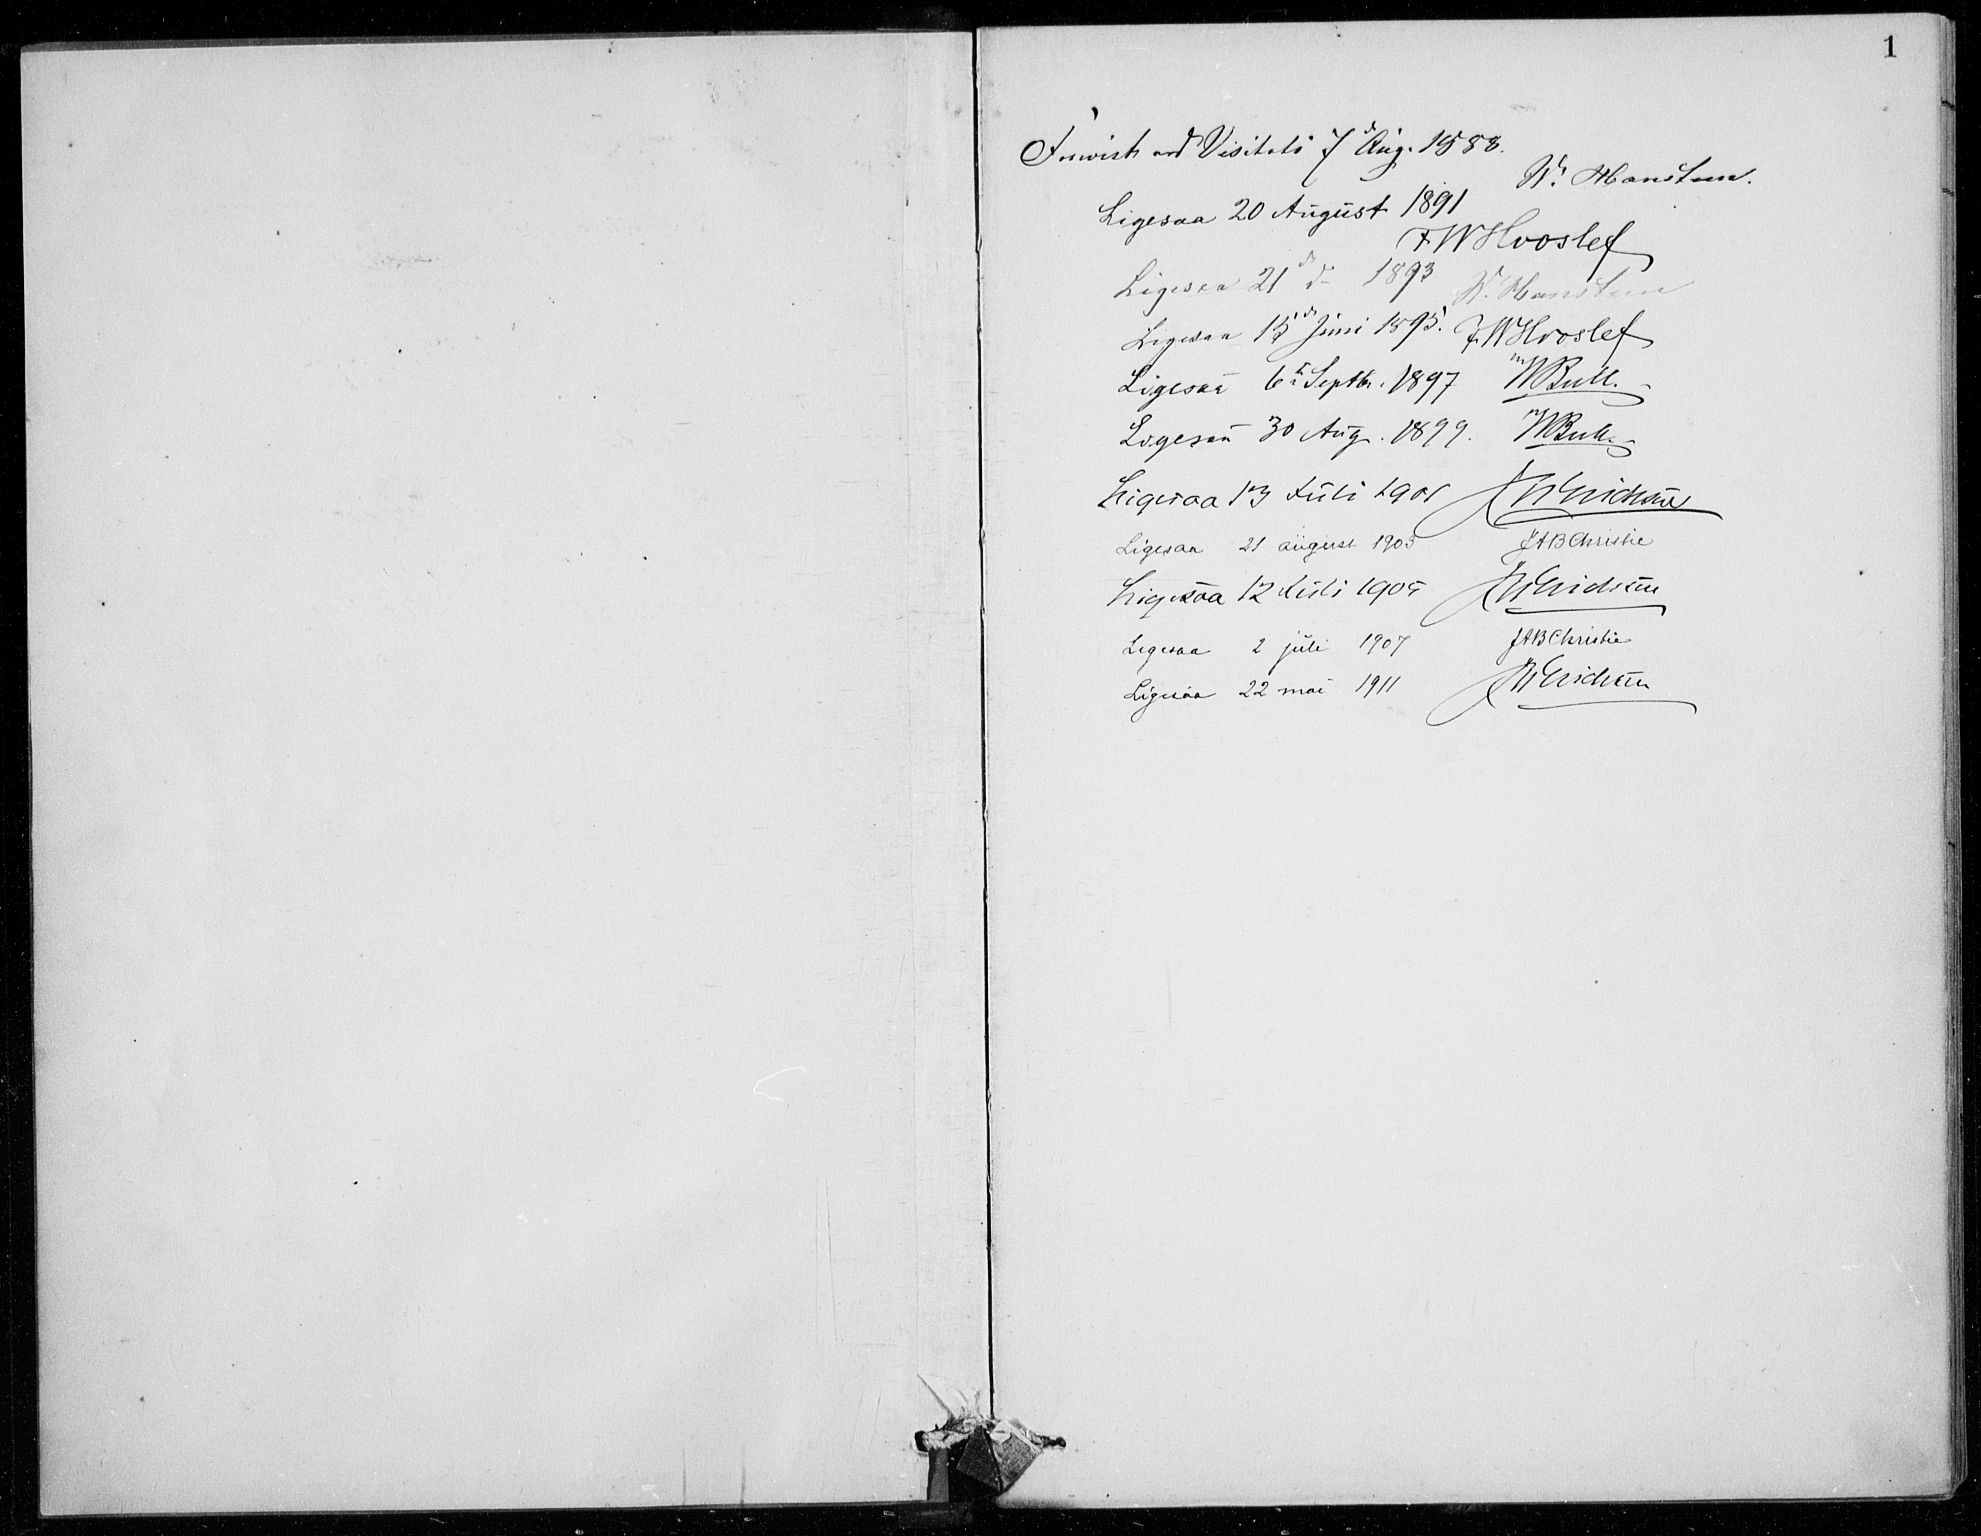 1
Forevist ved Visitats 7de Aug. 1888.
W. Hansteen.
Ligesaa 20 August 1891
F W Hvoslef
Ligesaa 21de d- 1893 W. Hansteen
Ligesaa 15de Juni 1895. F. W Hvoslef
Ligesaa 6te Septbr. 1897 W Bull.
Ligesaa 30 Aug. 1899. W Bull
Ligesaa 13 Juli 1901
Ligesaa 21 august 1903 JAB Christie
Ligesaa 12 Juli 1905
Ligesaa 2 juli 1907 JAB Christie
Ligesaa 22 mai 1911